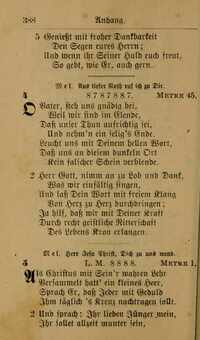 388 Anhang.
5 Genießt mit froher Dankbarkeit
Den Segen eures Herrn;
Und wenn ihr Seiner Huld euch freut,
So gebt, wie Er, auch gern.
Mel. Aus tiefer Noth ruf ich zu Dir.
4 8 7 8 7 8 8 7. METRE 45.
O Vater, steh uns gnädig bei,
Weil wir sind im Elende,
Daß unser Thun aufrichtig sei,
Und nehm'n ein selig's Ende.
Leucht uns mit Deinem hellen Wort,
Daß uns an diesem dunkeln Ort
Kein falscher Schein verblende.
2 Herr Gott, nimm an zu Lob und Dank,
Was wir einfältig singen,
Und laß Dein Wort mit freiem Klang
Von Herz zu Herz durchdringen;
Ja hilf, daß wir mit Deiner Kraft
Durch recht geistliche Ritterschaft
Des Lebens Kron erlangen.
Mel. Herr Jesu Christ, Dich zu uns wend.
5 L. M. 8 8 8 8. METRE 1.
Als Christus mit Sein'r wahren Lehr
Versammelt hatt' ein kleines Heer,
Sprach Er, daß Jeder mit Geduld
Ihm täglich 's Kreuz nachtragen sollt.
2 Und sprach: Ihr lieben Jünger mein,
Ihr sollet allzeit munter sein,